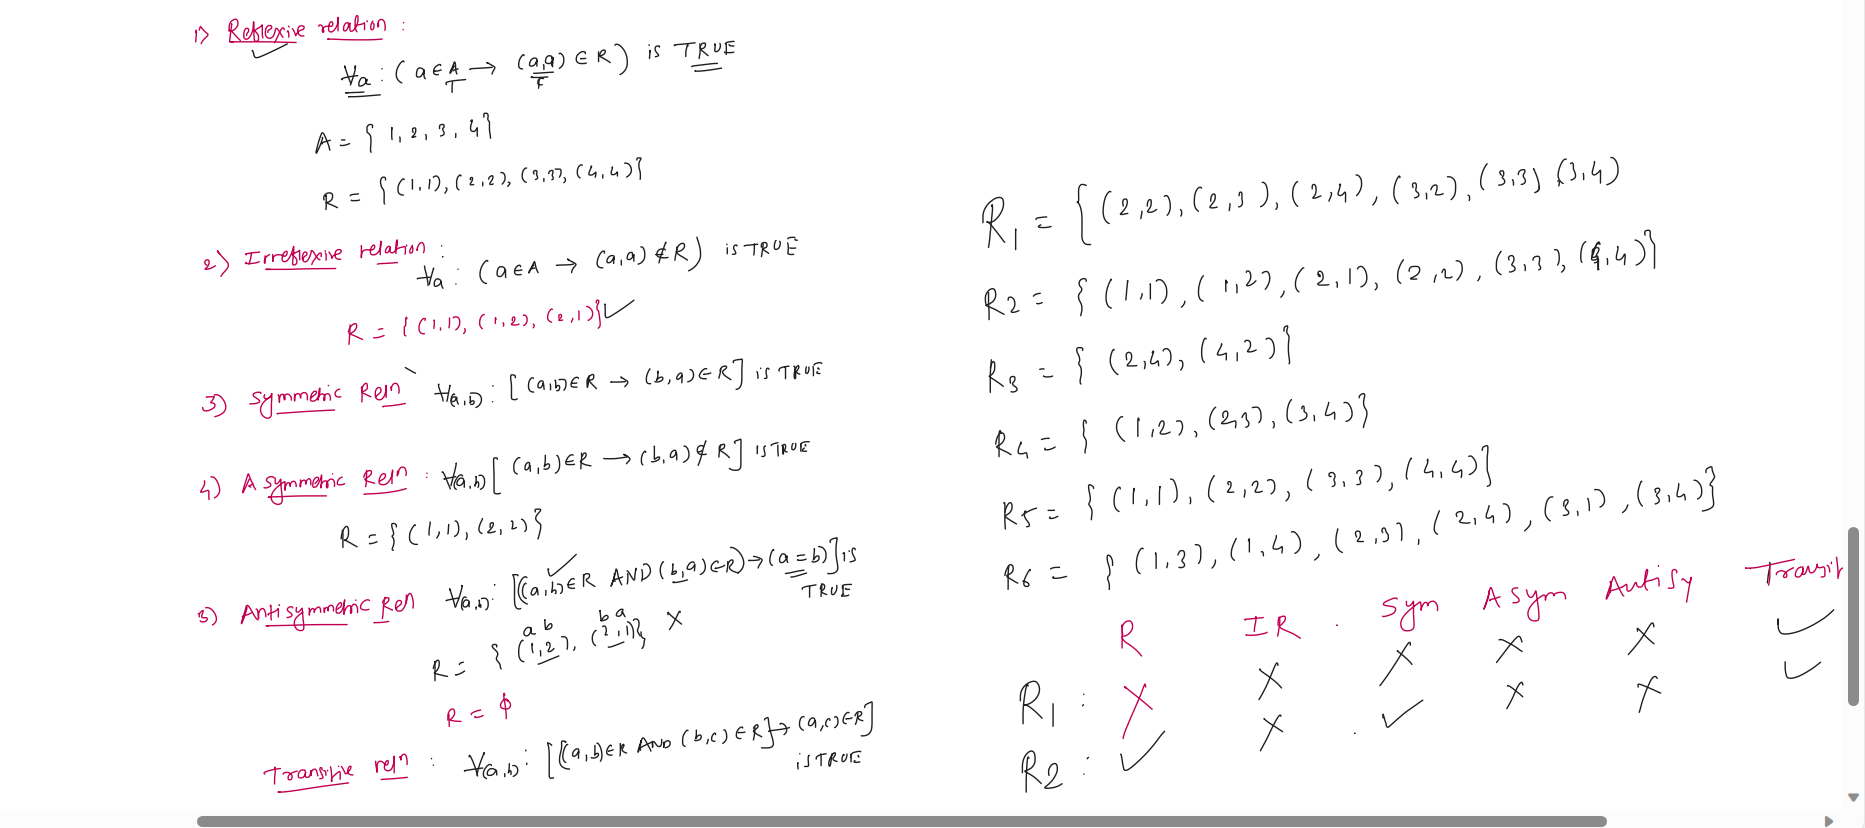 1) Reflexive relation :
∀a : ( a ∈ A → (a,a) ∈ R ) is TRUE
T F
A = { 1, 2, 3, 4}
R = { (1,1), (2,2), (3,3), (4,4)}
2) Irreflexive relation :
∀a : ( a ∈ A → (a,a) ∉ R ) is TRUE
R = { (1,1), (1,2), (2,1)} ✓
3) Symmetric Reln ∀(a,b) : [ (a,b) ∈ R → (b,a) ∈ R ] is TRUE
4) A symmetric Reln : ∀(a,b) [ (a,b) ∈ R → (b,a) ∉ R ] is TRUE
R = { (1,1), (2,2)}
5) Antisymmetric Reln ∀(a,b) : [((a,b) ∈ R AND (b,a) ∈ R) → (a = b)] is
TRUE
a b b a
R = { (1,2), (2,1)} X
R = ϕ
Transitive reln : ∀(a,b) : [((a,b) ∈ R AND (b,c) ∈ R] → (a,c) ∈ R]
is TRUE
R1 = { (2,2), (2,3), (2,4), (3,2), (3,3) (3,4)
R2 = { (1,1), (1,2), (2,1), (2,2), (3,3), (4,4)}
R3 = { (2,4), (4,2)}
R4 = { (1,2), (2,3), (3,4)}
R5 = { (1,1), (2,2), (3,3), (4,4)}
R6 = { (1,3), (1,4), (2,3), (2,4), (3,1), (3,4)}
R IR . Sym A Sym Antisy Transit
R1 : X X X X X ✓
R2 : ✓ X . ✓ X X ✓